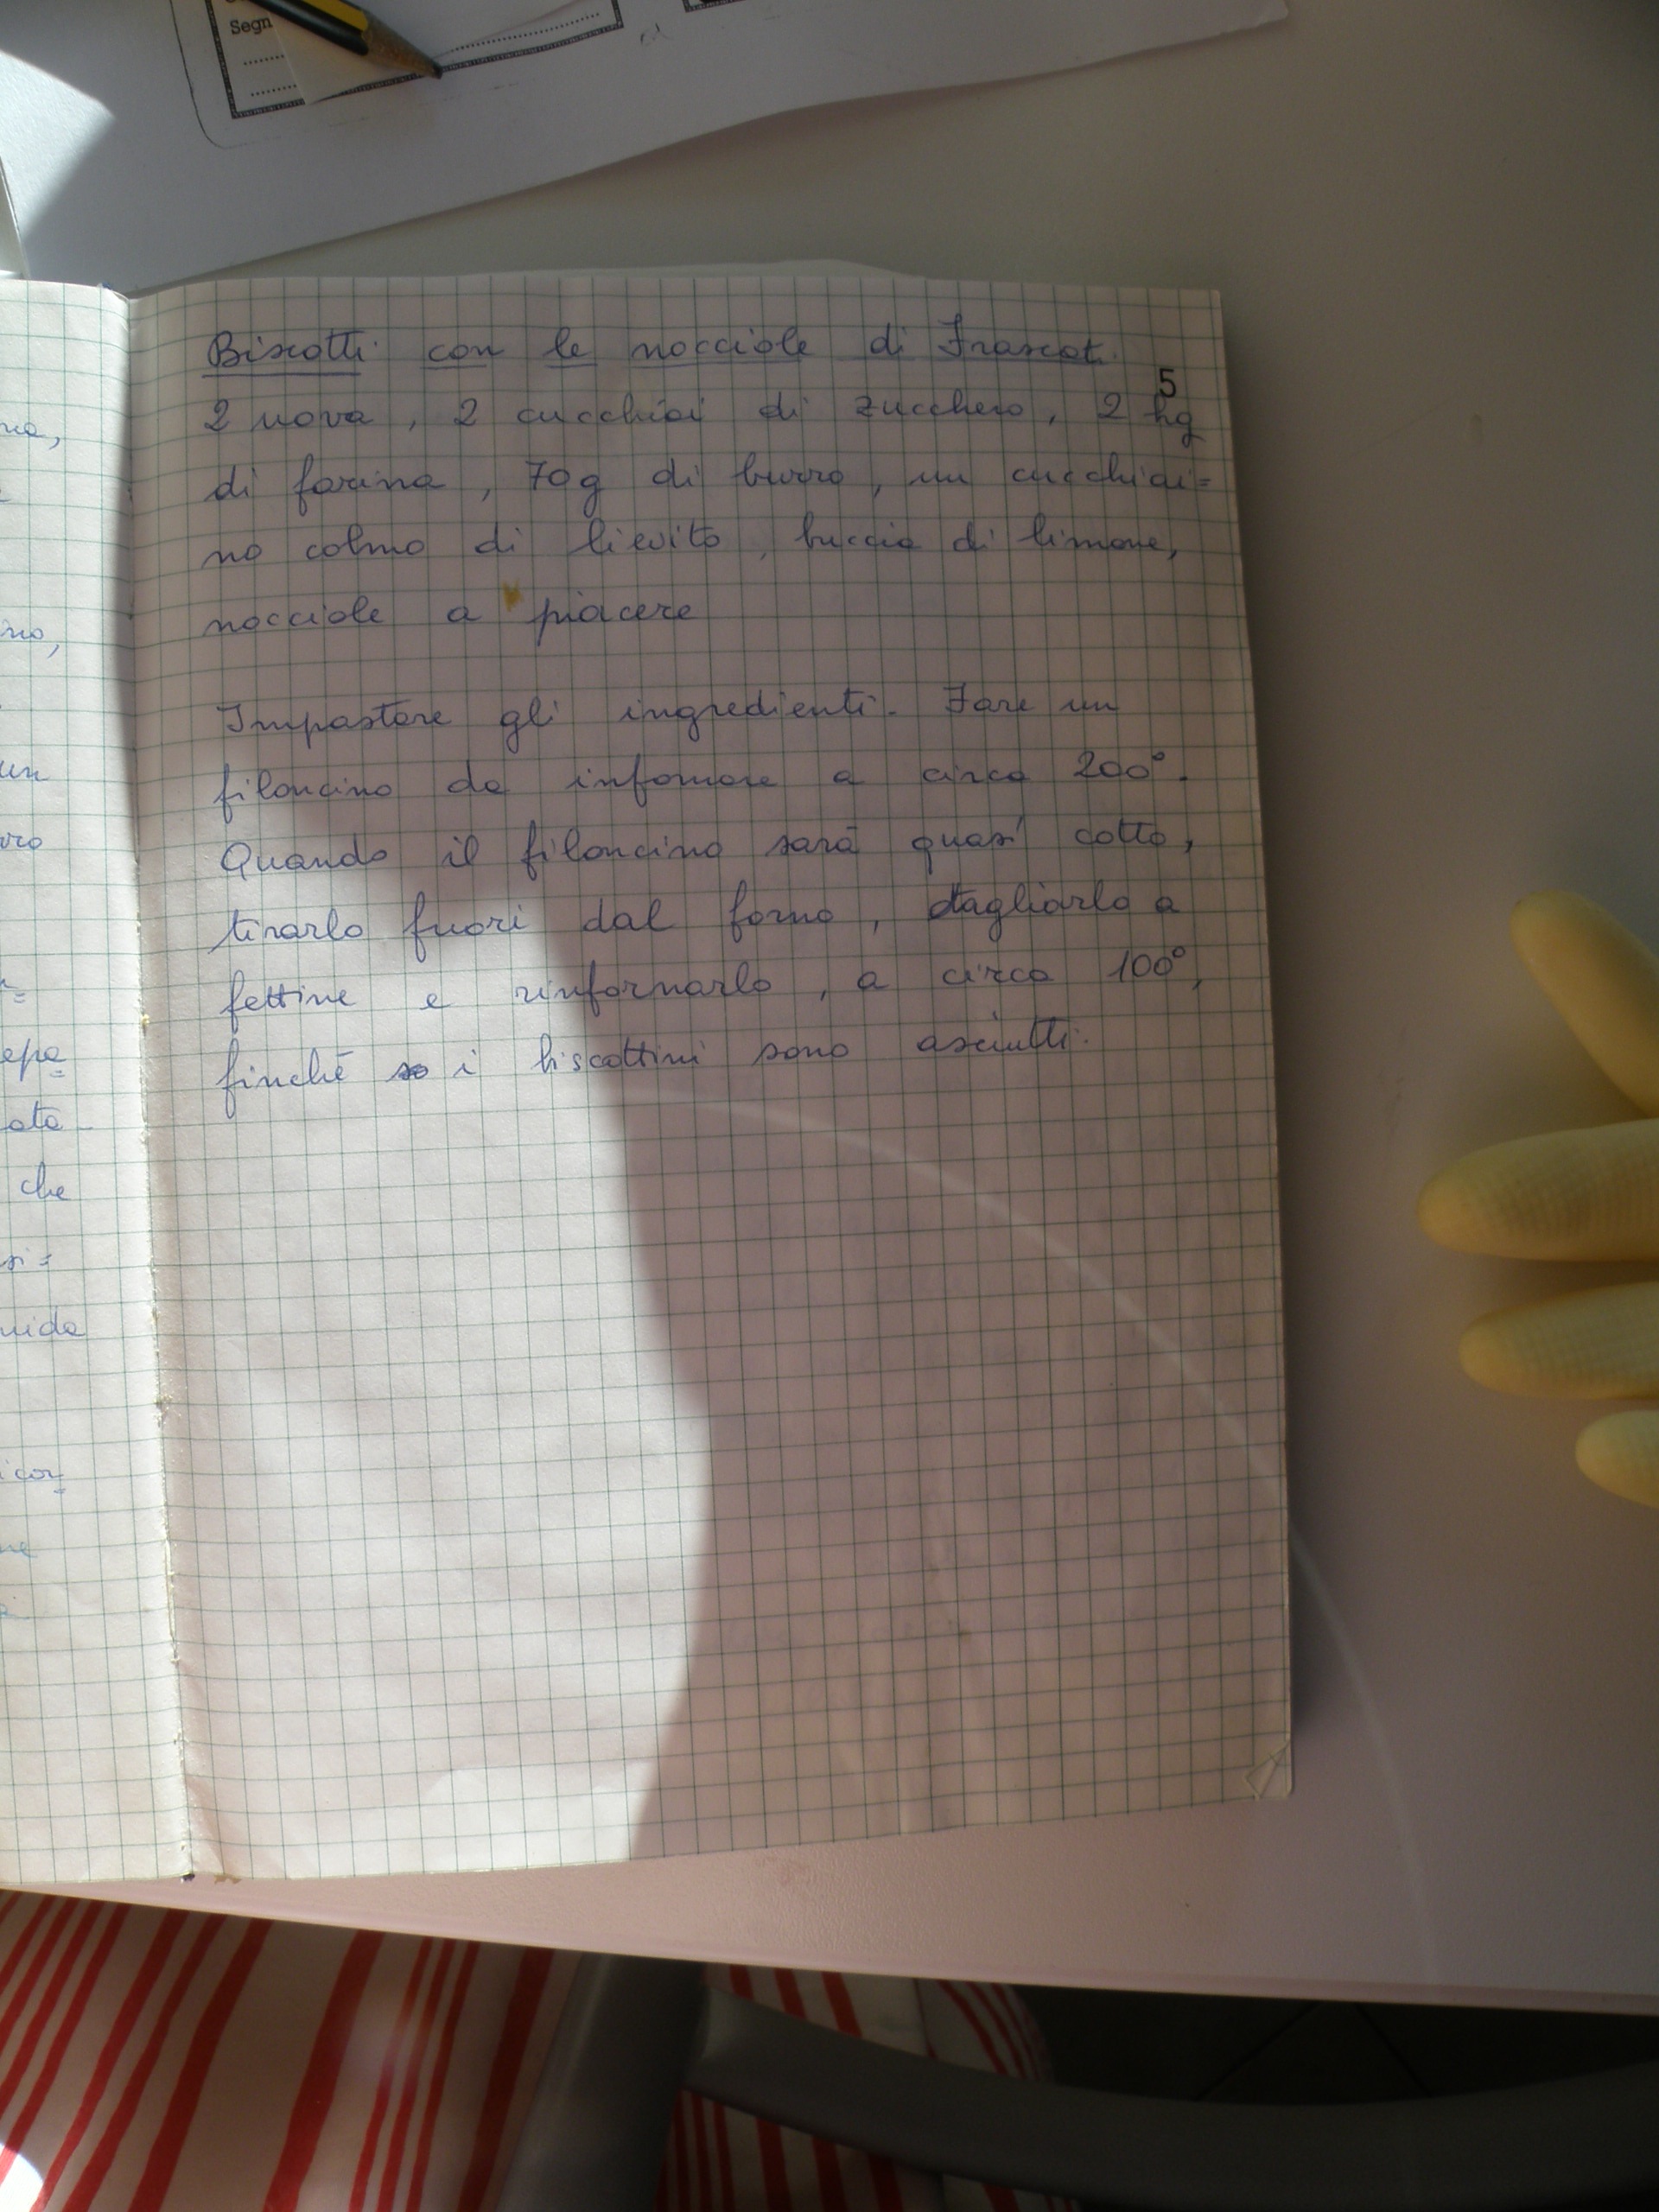 Segn
Biscotti con le nocciole di Frascati
5
2 uova, 2 cucchiai di zucchero, 2 hg
di farina, 70g di burro, un cucchiai=
no colmo di lievito, buccia di limone,
nocciole a piacere
Impastare gli ingredienti. Fare un
filoncino da infornare a circa 200°.
Quando il filoncino sarà quasi cotto,
tirarlo fuori dal forno, tagliarlo a
fettine e rinfornarlo, a circa 100°,
finché i biscottini sono asciutti.
un
che